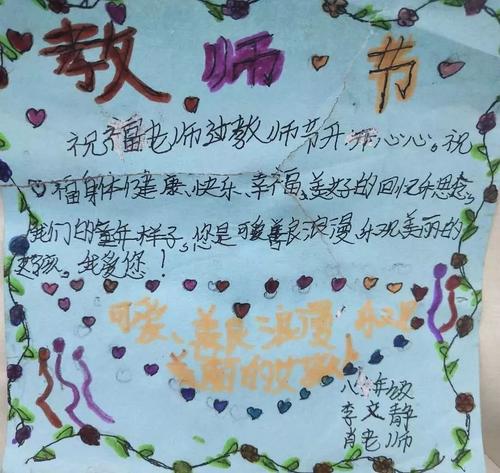 教师节
祝福老师过教师节开开心心。祝
福身体健康、快乐、幸福、美好的回忆和思念。
我们的童年样子。您是可爱善良浪漫、乐观美丽的
女孩。我爱您！
可爱、善良浪漫
美丽的女孩！
八年级
李文静
肖老师